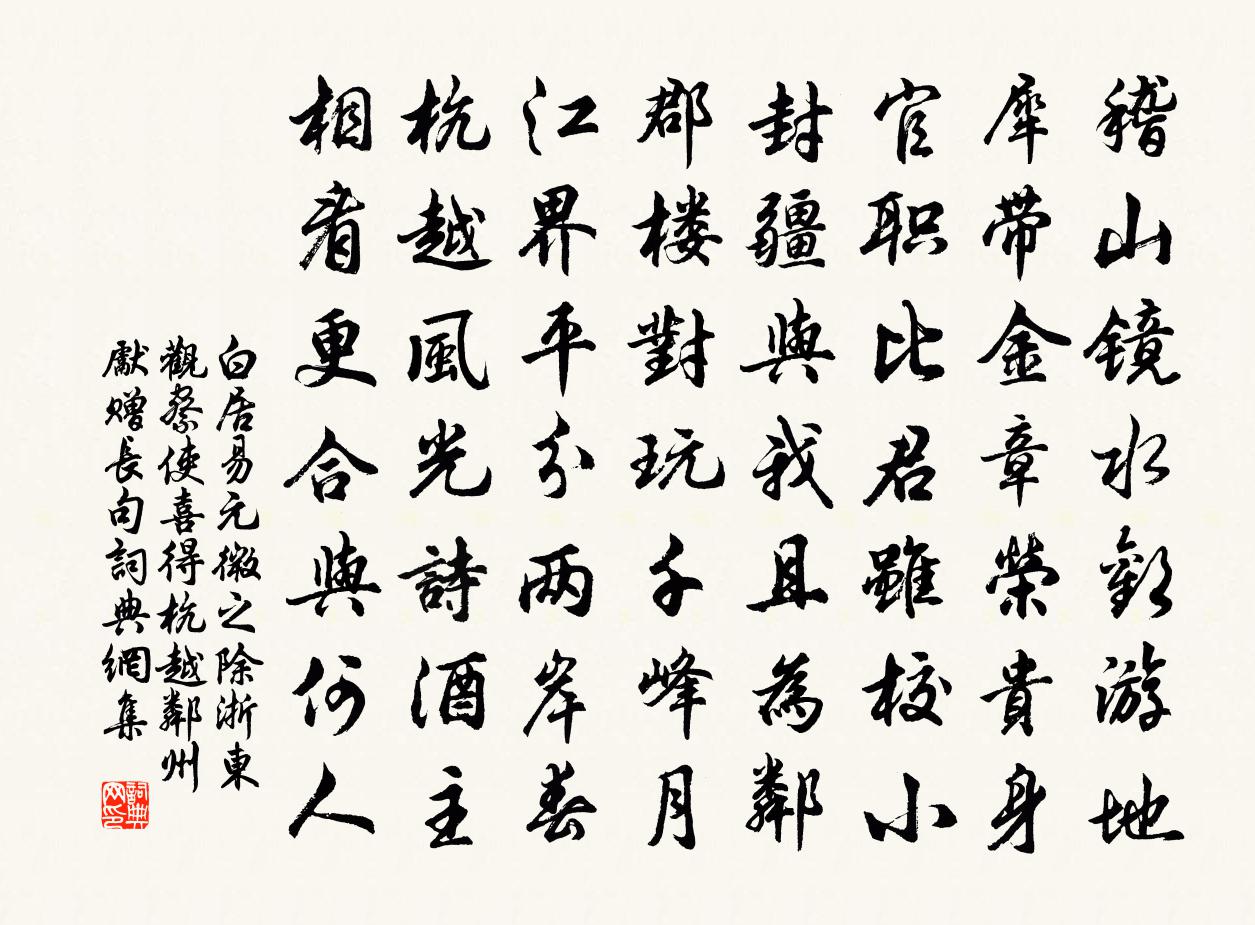 稽山镜水歡游地
犀带金章榮貴身
官职比君雖校小
封疆與我且為鄰
郡楼對玩千峰月
江界平分两岸春
杭越風光詩酒主
相看更合與何人
白居易元微之除浙東
觀察使喜得杭越鄰州
獻贈長句詞典網集
詞典网印